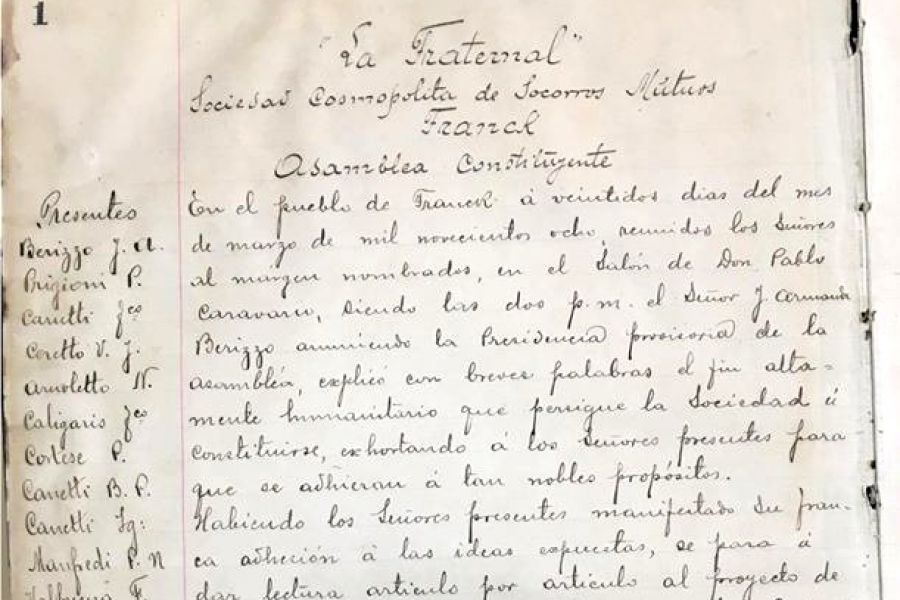 1
"La Fraternal"
Sociedad Cosmopolita de Socorros Mútuos
Franck
Asamblea Constituyente
Presentes
Berizzo J. A.
Brigioni P.
Canetti Fco
Coretto V. J.
Arnoletto N.
Caligaris Fco
Cortese P.
Canetti B. P.
Canetti Ig:
Manfredi P. N
En el pueblo de Franck á veintidos dias del mes
de marzo de mil novecientos ocho, reunidos los Señores
al margen nombrados, en el Salón de Don Pablo
Caravario, siendo las dos p.m. el Señor J. Armando
Berizzo asumiendo la Presidencia provisoria de la
asambléa, explicó con breves palabras el fin alta=
mente humanitario que persigue la Sociedad á
constituirse, exhortando á los Señores presentes para
que se adhieran á tan nobles propósitos.
Habiendo los Señores presentes manifestado su fran-
ca adheción á las ideas expuestas, se pasa á
dar lectura articulo por articulo al proyecto de